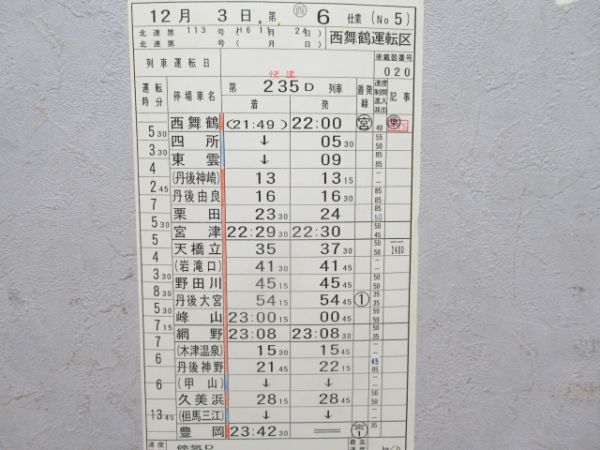 12月 3日 第 ㊃ 6 仕業 (No 5)
北運第 113 号 (H6 1 月 24 日)
北運第 号( 月 日) 西舞鶴運転区
列車運転日 車載装番号 020
快速
運転時分 停車場名 第 235D 列車 着発線 速度制限 記事
着 発
西舞鶴 (21:49) 22:00 宮 40
5 30 四所 ↓ 05 30
3 30 東雲 ↓ 09
4 (丹後神崎) 13 13 15
2 45 丹後由良 16 16 30
7 栗田 23 30 24
5 30 宮津 22:29 30 22:30
5 天橋立 35 37 30 2480
4 (岩滝口) 41 30 41 45
3 30 野田川 45 15 45 45
8 30 丹後大宮 54 15 54 45 ①
5 30 峰山 23:00 15 00 45
7 15 網野 23:08 23:08 30
7 (木津温泉) 15 30 15 45
6 丹後神野 21 45 22 15
6 (甲山) ↓ ↓
久美浜 28 15 28 45
(但馬三江) ↓ ↓
13 45 豊岡 23:42 30 ══ 1 35